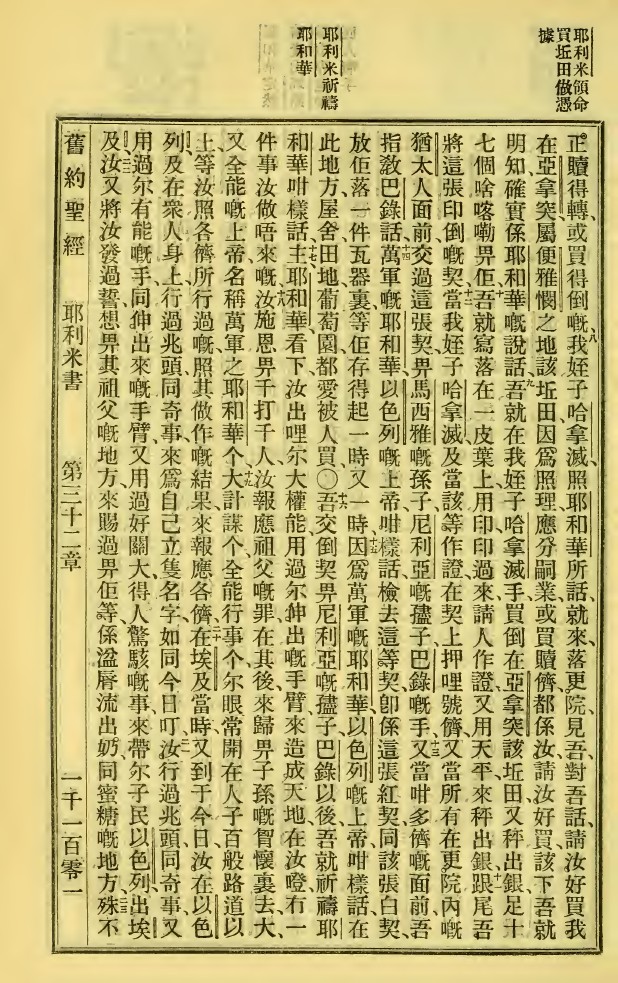 耶利米領命
買坵田做憑
據
耶利米祈禱
耶和華
正贖得轉、或買得倒嘅、八我姪子哈拿滅照耶和華所話、就來落更院見吾、對吾話、請汝好買我
在亞拿突屬便雅憫之地該坵田、因爲照理應分嗣業、或買贖儕都係汝、請汝好買、該下吾就
明知確實係耶和華嘅說話、九吾就在我姪子哈拿滅手買倒在亞拿突該坵田、又秤出銀足十
七個啥喀嘞畀佢、十吾就寫落在一皮葉上、用印印過來、請人作證、又用天平來秤出銀、十一跟尾吾
將這張印倒嘅契、當我姪子哈拿滅、及當該等作證在契上押哩號儕、又當所有在更院內嘅
猶太人面前、交過這張契畀馬西雅嘅孫子尼利亞嘅孻子巴錄嘅手、十三又當咁多儕嘅面前、吾
指敎巴錄話、十四萬軍嘅耶和華、以色列嘅上帝咁樣話、檢去這等契、卽係這張紅契同該張白契、
放佢落一件瓦器裏、等佢存得起一時又一時、十五因爲萬軍嘅耶和華、以色列嘅上帝咁樣話、在
此地方、屋舍田地葡萄園都愛被人買、〇十六吾交倒契畀尼利亞嘅孻子巴錄以後、吾就祈禱耶
和華咁樣話、十七主耶和華、看下汝出哩尔大權能、用過尔伸出嘅手臂、來造成天地、在汝噔冇一
件事汝做唔來嘅、十八汝施恩畀千打千人、汝報應祖父嘅罪在其後來歸畀子孫嘅胷懷裏去、大
又全能嘅上帝、名稱萬軍之耶和華、十九个大計謀、个全能行事、个尔眼常開在人子百般路道、以
上等汝照各儕所行過嘅、照其做作嘅結果、來報應各儕、二十在埃及當時、又到于今日、汝在以色
列、及在衆人身上、行過兆頭同奇事、來爲自己立隻名字、如同今日叮、二一汝行過兆頭同奇事、又
用過尔有能嘅手、同伸出來嘅手臂、又用過好關大得人驚駭嘅事、來帶尔子民以色列出埃
及、二二汝又將汝發過誓想畀其祖父嘅地方、來賜過畀佢等、係湓唇流出奶同蜜糖嘅地方、二三殊不
舊約聖經　耶利米書　第三十二章　一千一百零一